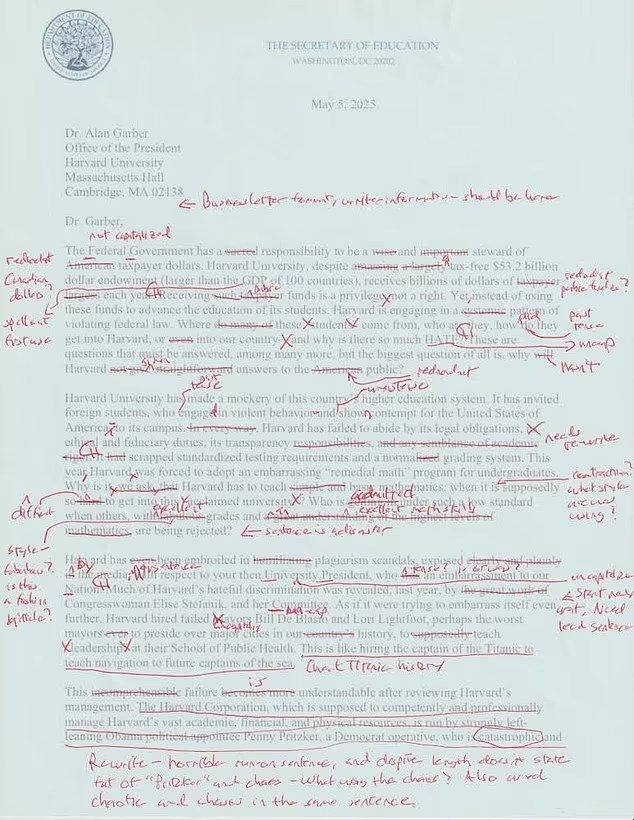 DEPARTMENT OF EDUCATION
THE SECRETARY OF EDUCATION
WASHINGTON, DC 20202
May 5, 2025
Dr. Alan Garber
Office of the President
Harvard University
Massachusetts Hall
Cambridge, MA 02138
← Business letter format, writer information - should be here
Dr. Garber,
not capitalized
The Federal Government has a sacred responsibility to be a wise and important steward of
American taxpayer dollars. Harvard University, despite amassing a largely tax-free $53.2 billion
dollar endowment (larger than the GDP of 100 countries), receives billions of dollars of taxpayer
each year. Receiving such funds is a privilege, not a right. Yet, instead of using
these funds to advance the education of its students, Harvard is engaging in a pattern of
violating federal law. Where do many of these students come from, who are they, how do they
get into Harvard, or even into our country and why is there so much HATE? These are
questions that must be answered, among many more, but the biggest question of all is, why will
Harvard not give straightforward answers to the American public?
redundant
Canadian
dollars?
spell out
first use
redundant
public funds?
past
tense
uncap
won't
redundant
Harvard University has made a mockery of this country's higher education system. It has invited
foreign students, who engaged in violent behavior and shown contempt for the United States of
America, to its campus. In every way, Harvard has failed to abide by its legal obligations,
ethical and fiduciary duties, its transparency responsibilities, and any semblance of academic
had scrapped standardized testing requirements and a normalized grading system. This
year Harvard was forced to adopt an embarrassing "remedial math" program for undergraduates.
Why is it, we ask, that Harvard has to teach simple and basic mathematics, when it is supposedly
to get into this acclaimed university? Who is under such a low standard
when others, with grades and a great understanding of the highest levels of
mathematics, are being rejected?
needs
rewrite
contraction?
admitted
excellent
← sentence is a disaster
style-
is this
a
Harvard has even been embroiled in humiliating plagiarism scandals, exposed clearly and plainly
in the media, with respect to your then University President, who an embarrassment to our
Nation. Much of Harvard's hateful discrimination was revealed, last year, by the great work of
Congresswoman Elise Stefanik, and her As if it were trying to embarrass itself even
further, Harvard hired failed Mayors Bill De Blasio and Lori Lightfoot, perhaps the worst
mayors ever to preside over major cities in our country's history, to supposedly teach
"leadership" at their School of Public Health. This is like hiring the captain of the Titanic to
teach navigation to future captains of the sea.
tense? is or was?
uncapitalize
lead sentence
Check Titanic history
is
This incomprehensible failure becomes more understandable after reviewing Harvard's
management. The Harvard Corporation, which is supposed to competently and professionally
manage Harvard's vast academic, financial, and physical resources, is run by strongly left-
leaning Obama political appointee Penny Pritzker, a Democrat operative, who is catastrophic and
Rewrite - horrible run on sentence, and despite length doesn't state
of "Pritzker" and chaos - What was the chaos? Also avoid
chaotic and chaos in the same sentence.